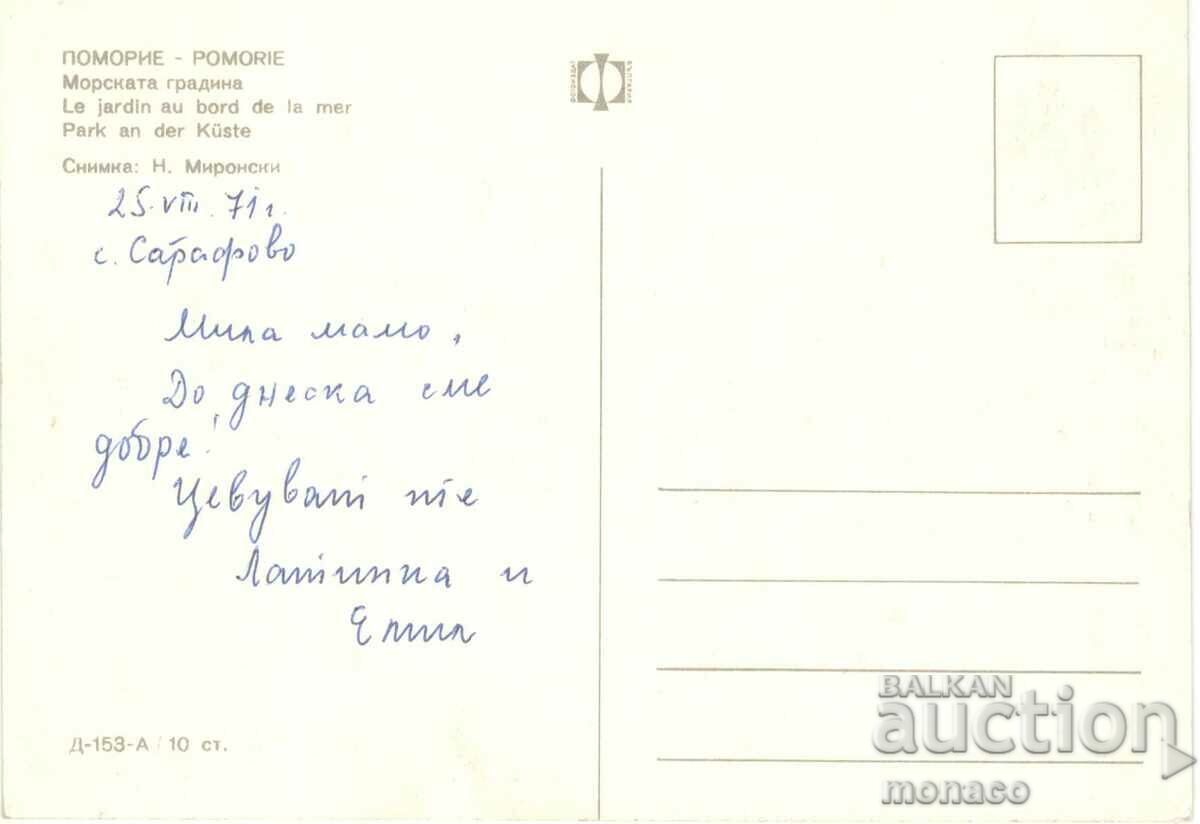 ПОМОРИЕ - POMORIE
Морската градина
Le jardin au bord de la mer
Park an der Küste
Снимка: Н. Миронски
25.VIII.71г.
с. Сарафово
Мила мамо,
До днеска сме
добре!
Цевуват те
Латинка и
Емил
Д-153-А / 10 ст.
ФОТОИЗДАТ
БЪЛГАРИЯ
BALKAN
auction
monaco